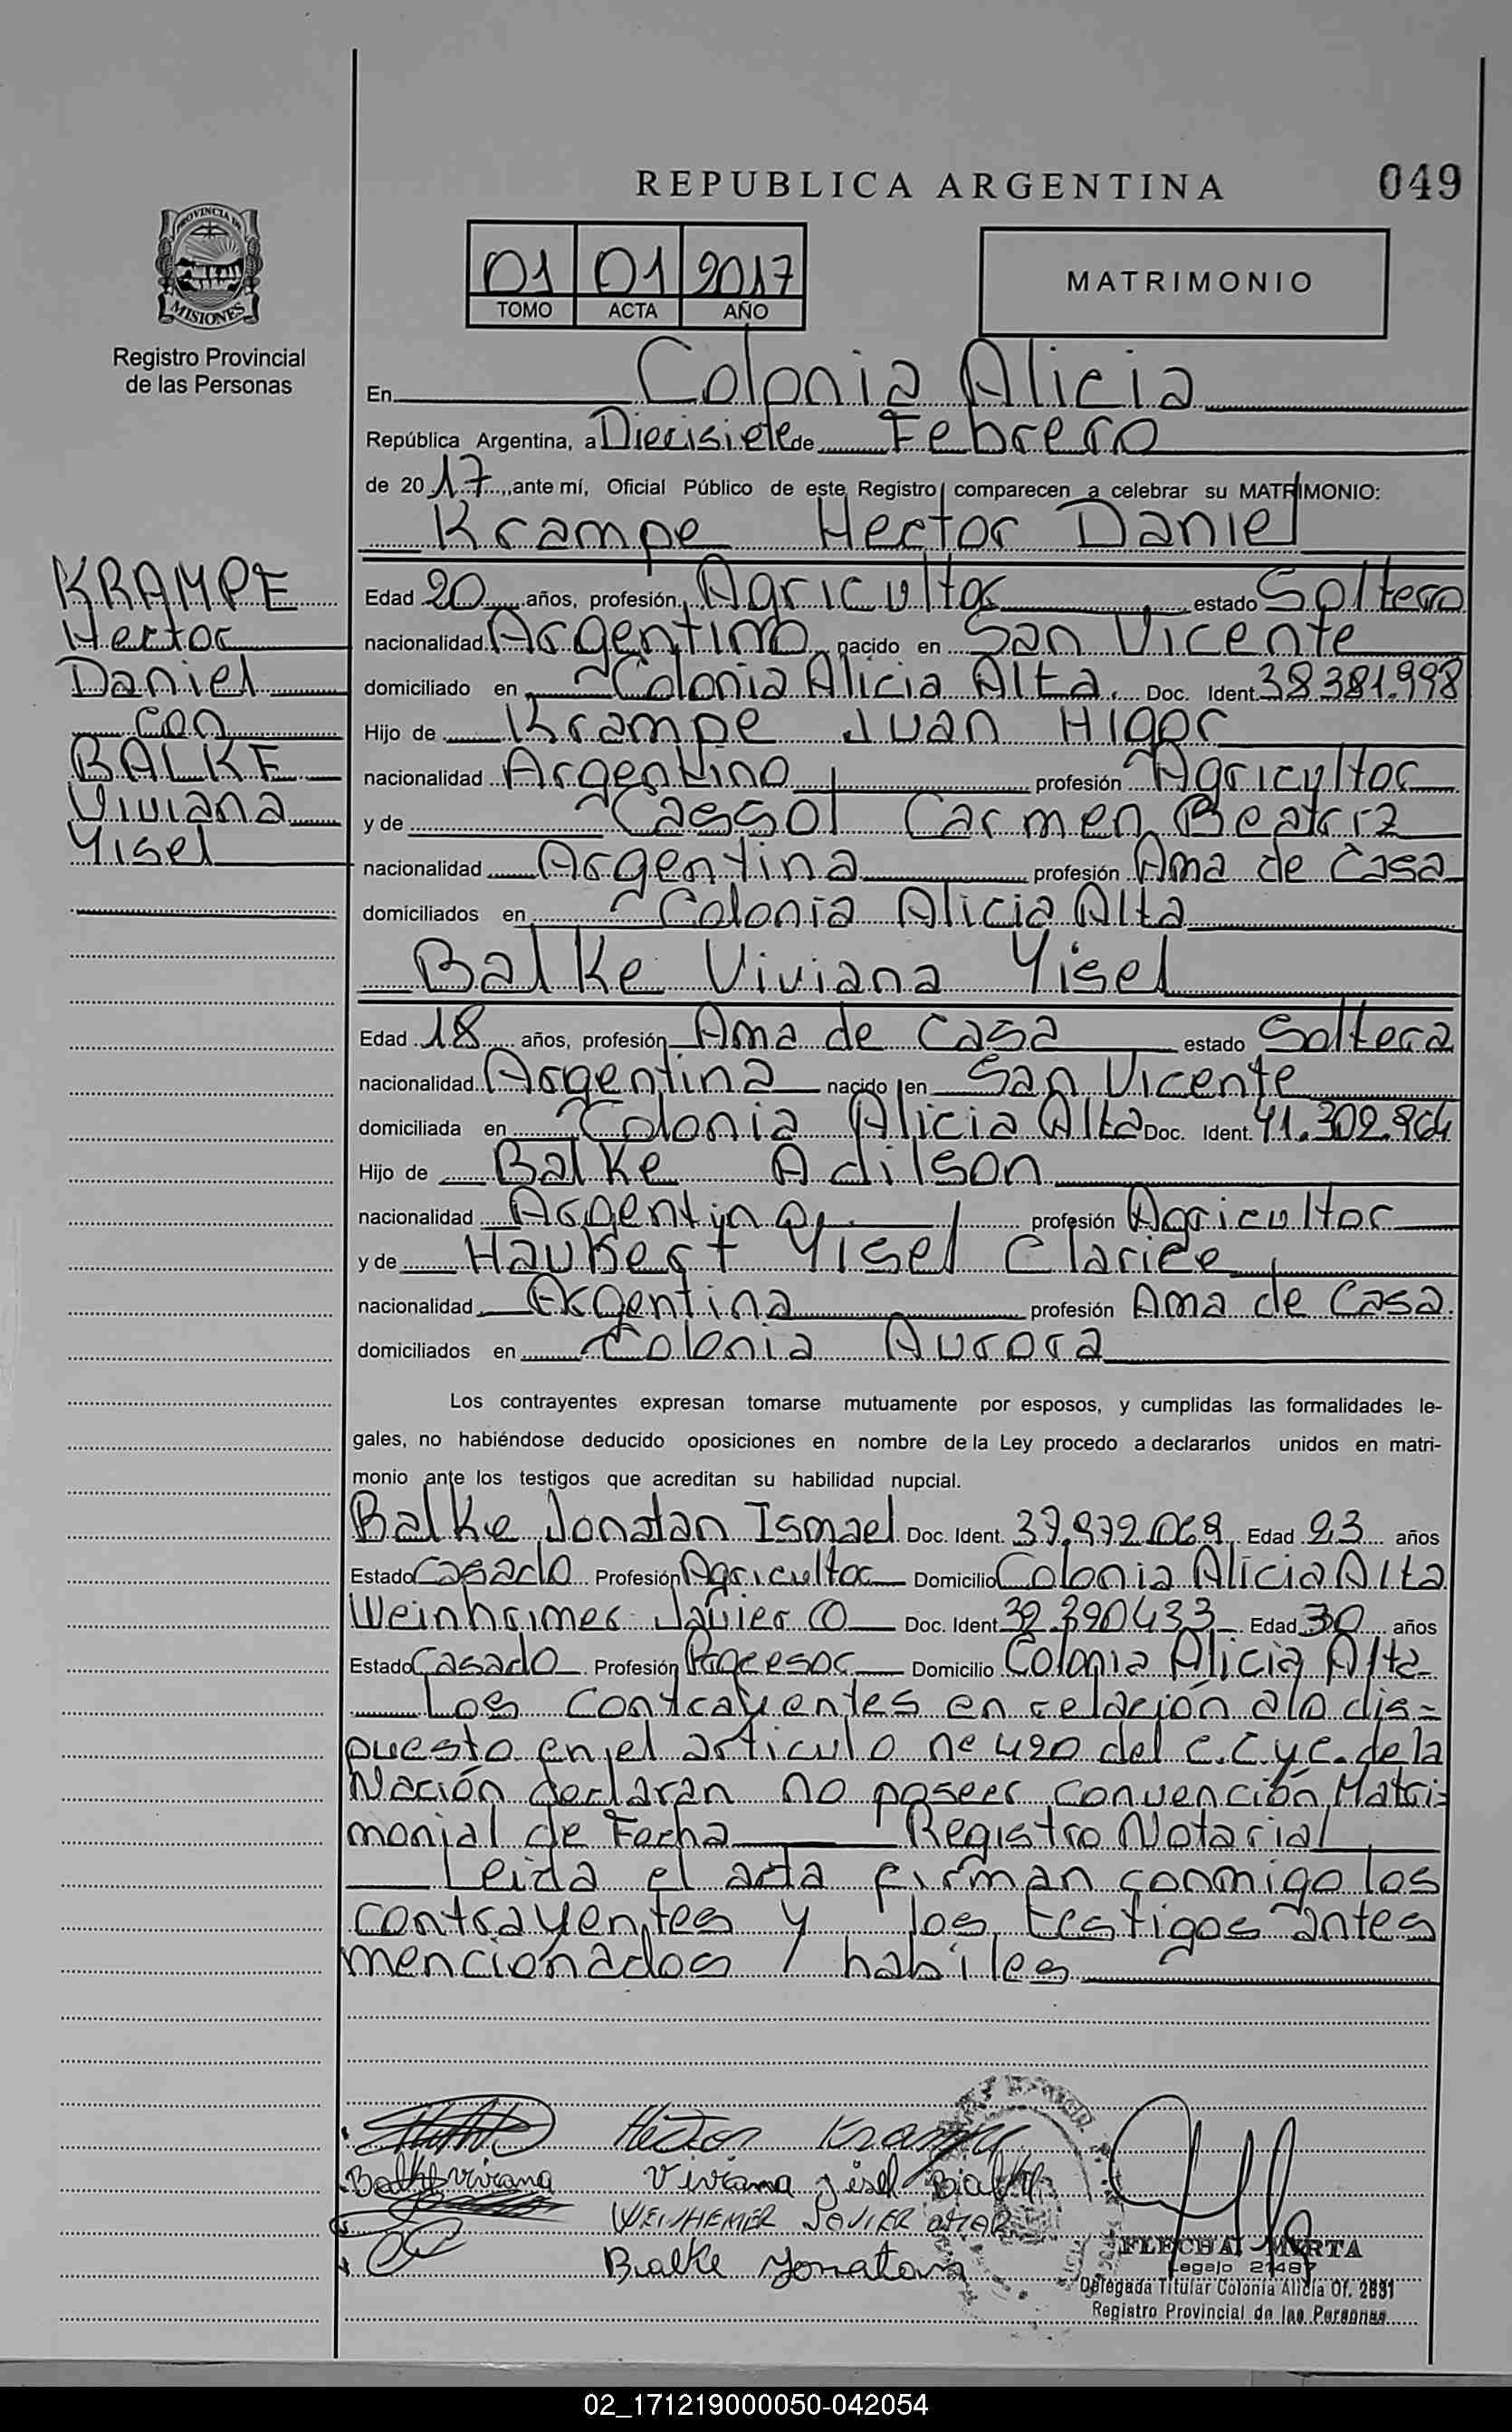 REPUBLICA ARGENTINA
049
PROVINCIA DE
MISIONES
Registro Provincial
de las Personas
01 01 2017
TOMO ACTA AÑO
MATRIMONIO
En Colonia Alicia
República Argentina, a Diecisiete de Febrero
de 2017, ante mí, Oficial Público de este Registro comparecen a celebrar su MATRIMONIO:
Krampe Hector Daniel
KRAMPE
Hector
Daniel
con
BALKE
Viviana
Yisel
Edad 20 años, profesión Agricultor estado Soltero
nacionalidad Argentino nacido en San Vicente
domiciliado en Colonia Alicia Alta. Doc. Ident. 38.381.998
Hijo de Krampe Juan Higor
nacionalidad Argentino profesión Agricultor
y de Cassol Carmen Beatriz
nacionalidad Argentina profesión Ama de Casa
domiciliados en Colonia Alicia Alta
Balke Viviana Yisel
Edad 18 años, profesión Ama de Casa estado Soltera
nacionalidad Argentina nacido en San Vicente
domiciliada en Colonia Alicia Alta Doc. Ident. 41.302.964
Hijo de Balke Adilson
nacionalidad Argentino profesión Agricultor
y de Haubert Yisel Clarice
nacionalidad Argentina profesión Ama de Casa.
domiciliados en Colonia Aurora
Los contrayentes expresan tomarse mutuamente por esposos, y cumplidas las formalidades le-
gales, no habiéndose deducido oposiciones en nombre de la Ley procedo a declararlos unidos en matri-
monio ante los testigos que acreditan su habilidad nupcial.
Balke Jonatan Ismael Doc. Ident. 37.972.069 Edad 23 años
Estado Casado Profesión Agricultor Domicilio Colonia Alicia Alta
Weinheimer Javier O Doc. Ident. 32.390433 Edad 30 años
Estado Casado Profesión Domicilio Colonia Alicia Alta
Los contrayentes en relación a lo dis=
puesto en el articulo nº 420 del C.C y C. de la
Nación declaran no poseer convención Matri=
monial de Fecha Registro Notarial
Leida el acta firman conmigo los
contrayentes y los testigos antes
mencionados y habiles
Hector Krampe
Balke Viviana Viviana Yisel Balke
WEINHEMER JAVIER OMAR
Balke Jonatan
FLECHA MIRTA
Legajo 21487
Delegada Titular Colonia Alicia Of. 2891
Registro Provincial de las Personas
02_171219000050-042054